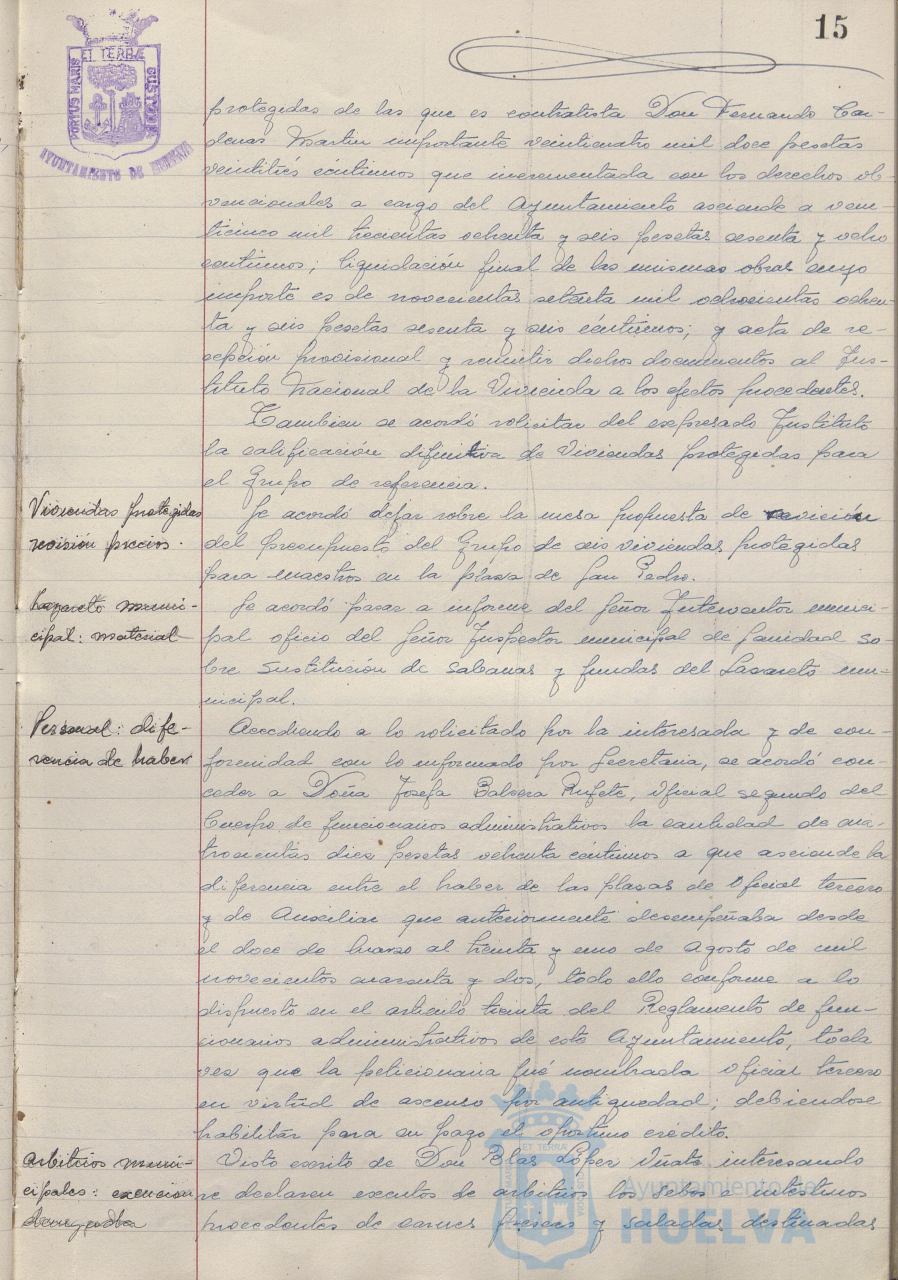 15
ET TERRÆ
PORTUS MARIS
CUSTODIA
AYUNTAMIENTO DE HUELVA
protegidas de las que es contratista Don Fernando Car-
denas Martin importante veinticuatro mil doce pesetas
veintitrés céntimos que incrementada con los derechos ob-
vencionales a cargo del Ayuntamiento asciende a vein-
ticinco mil trecientas ochenta y seis pesetas sesenta y ocho
centimos; liquidación final de las mismas obras cuyo
importe es de novecientas setenta mil ochocientas ochen-
ta y seis pesetas sesenta y seis céntimos; y acta de re-
cepción provisional y remitir dichos documentos al Ins-
tituto Nacional de la Vivienda a los efectos procedentes.
Tambien se acordó solicitar del expresado Instituto
la calificación definitiva de Viviendas protegidas para
el Grupo de referencia.
Viviendas protegidas
revisión precios.
Se acordó dejar sobre la mesa propuesta de revición
del presupuesto del Grupo de seis viviendas protegidas
para maestros en la plaza de San Pedro.
Lazareto muni-
cipal: material
Se acordó pasar a informe del Señor Interventor munici-
pal oficio del Señor Inspector municipal de Sanidad so-
bre sustitución de sabanas y fundas del Lazareto mu-
nicipal.
Personal: dife-
rencia de haber
Accediendo a lo solicitado por la interesada y de con-
formidad con lo informado por Secretaria, se acordó con-
ceder a Doña Josefa Balsera Rufete, Oficial segundo del
Cuerpo de funcionarios administrativos la cantidad de cua-
trocientas diez pesetas ochenta céntimos a que asciende la
diferencia entre el haber de las plazas de Oficial tercero
y de Auxiliar que anteriormente desempeñaba desde
el doce de Marzo al treinta y uno de Agosto de mil
novecientos cuarenta y dos, todo ello conforme a lo
dispuesto en el articulo treinta del Reglamento de fun-
cionarios administrativos de este Ayuntamiento, toda
vez que la peticionaria fué nombrada Oficial tercero
en virtud de ascenso por antiguedad; debiendose
habilitar para su pago el oportuno crédito.
Arbitrios muni-
cipales: exencion
Visto escrito de Don Blas López Uñate interesando
se declaren exentos de arbitrios los sebos e intestinos
procedentes de carnes frescas y saladas destinadas
Ayuntamiento de
HUELVA